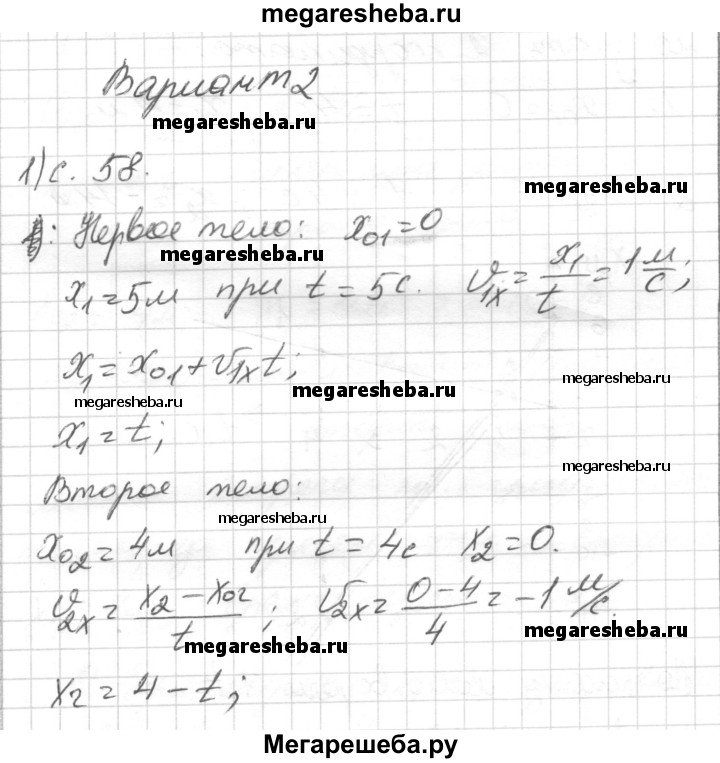 megaresheba.ru
Вариант 2
megaresheba.ru
1) с. 58.
megaresheba.ru
Первое тело: x₀₁=0
megaresheba.ru
x₁=5м при t=5с. v₁ₓ= x₁/t =1 м/с;
x₁=x₀₁+v₁ₓt;
megaresheba.ru
megaresheba.ru
megaresheba.ru
x₁=t;
megaresheba.ru
Второе тело:
megaresheba.ru
x₀₂=4м при t=4с x₂=0.
v₂ₓ= x₂-x₀₂/t ; v₂ₓ= 0-4/4 =-1 м/с.
megaresheba.ru
megaresheba.ru
x₂=4-t;
Мегарешеба.ру